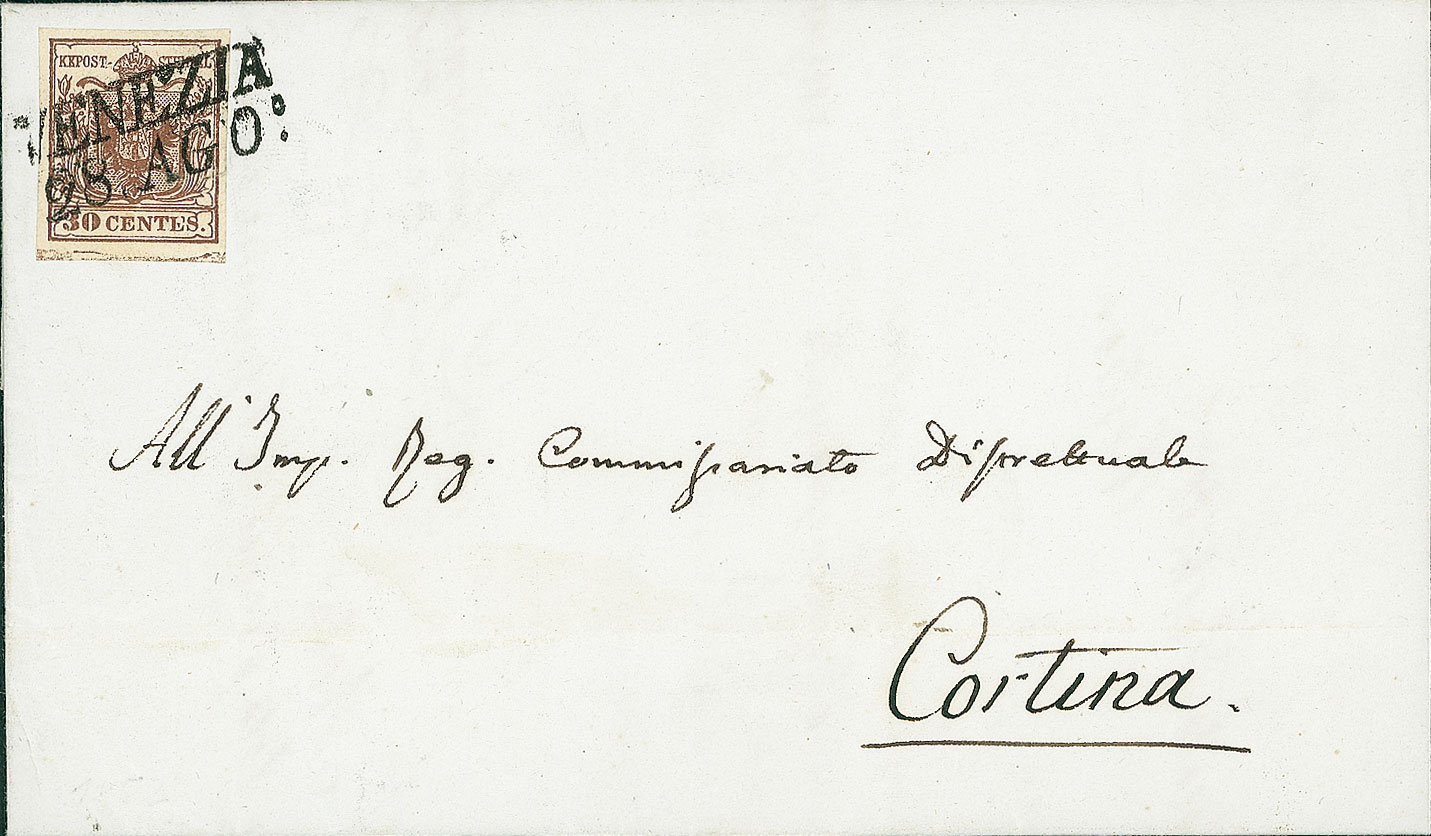 KKPOST-STEMPEL
VENEZIA
28. AGO:
30 CENTES.
All' Imp. Reg. Commissariato Distrettuale
Cortina.